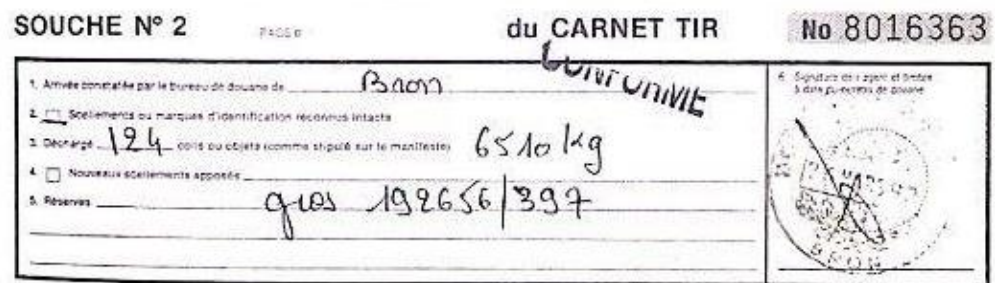 SOUCHE N° 2 PAGE du CARNET TIR No 8016363
CONFORME
1. Arrivée constatée par le bureau de douane de Bron
2. Scellements ou marques d'identification reconnus intacts
3. Déchargé 124 colis ou objets (comme stipulé sur le manifeste) 6510 kg
4. Nouveaux scellements apposés
5. Réserves gros 192656/397
6. Signature de l'agent et timbre
à date du bureau de douane
BRON